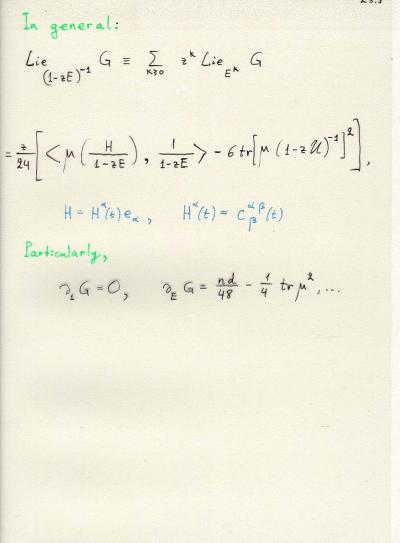 In general:
Lie_{(1-zE)^{-1}} G ≡ Σ_{k≥0} z^k Lie_{E^k} G
= z/24 [ < μ ( H/(1-zE) ), 1/(1-zE) > - 6 tr[ μ (1-zU)^{-1} ]^2 ],
H = H^α(t) e_α, H^α(t) = C^{αβ}_β(t)
Particularly,
∂_1 G = 0, ∂_E G = nd/48 - 1/4 tr μ^2, ...